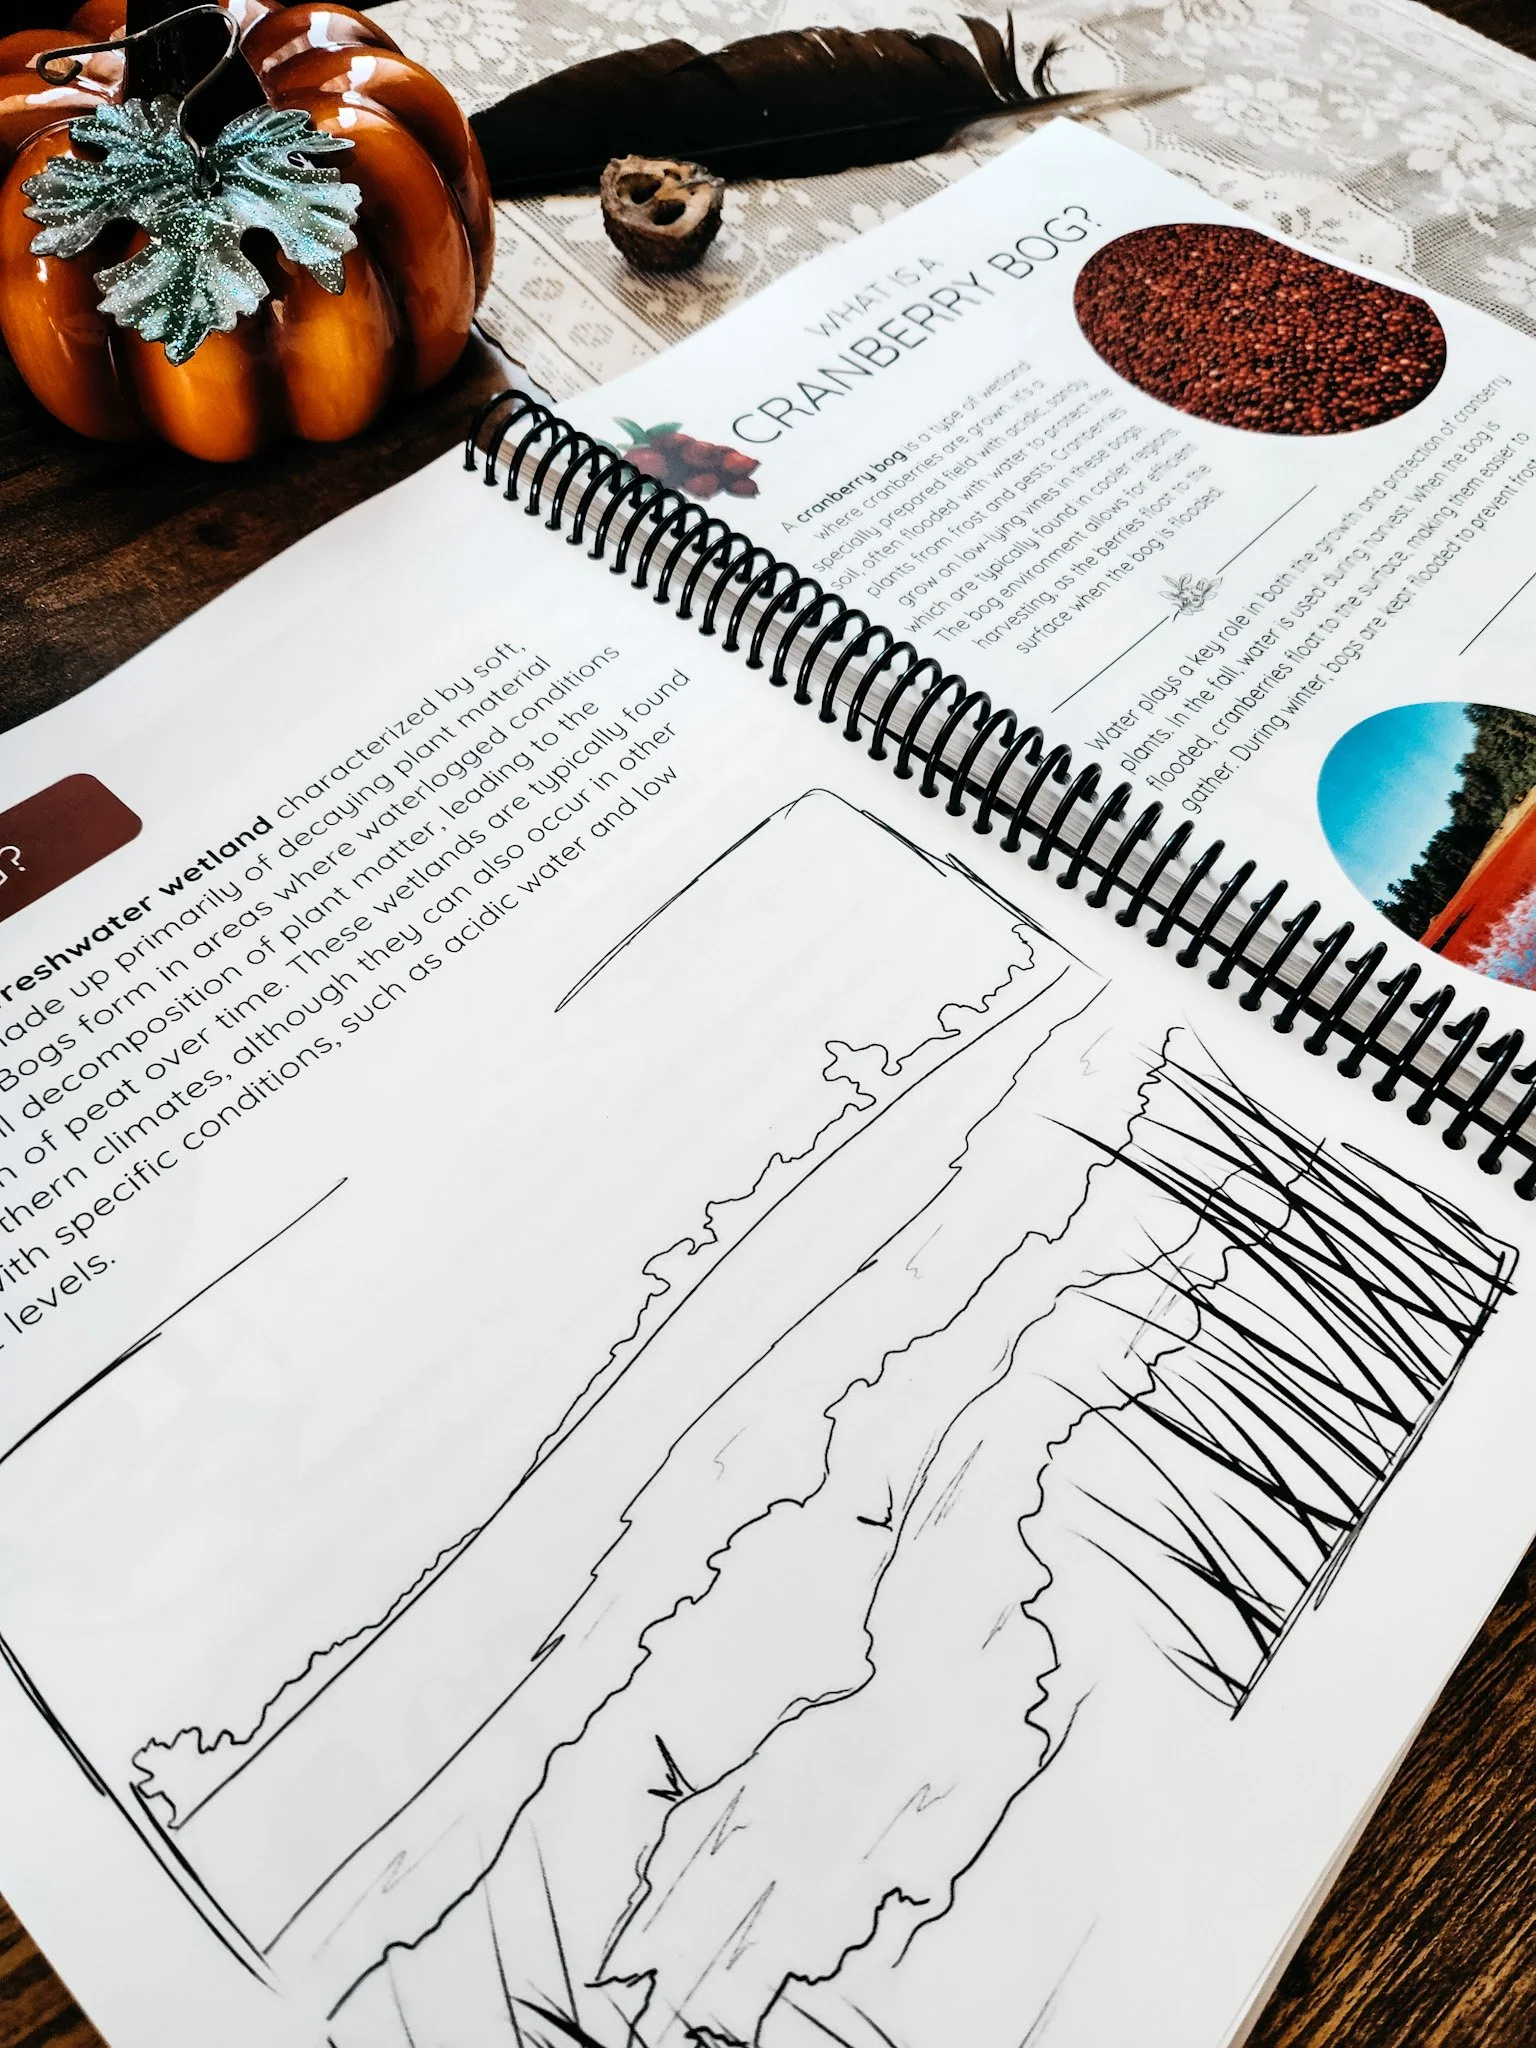 freshwater wetland characterized by soft,
made up primarily of decaying plant material
Bogs form in areas where waterlogged conditions
decomposition of plant matter, leading to the
of peat over time. These wetlands are typically found
climates, although they can also occur in other
with specific conditions, such as acidic water and low
levels.
WHAT IS A
CRANBERRY BOG?
A cranberry bog is a type of wetland
where cranberries are grown. It's a
specially prepared field with acidic, sandy
soil, often flooded with water to protect the
plants from frost and pests. Cranberries
grow on low-lying vines in these bogs,
which are typically found in cooler regions.
The bog environment allows for efficient
harvesting, as the berries float to the
surface when the bog is flooded.
Water plays a key role in both the growth and protection of cranberry
plants. In the fall, water is used during harvest. When the bog is
flooded, cranberries float to the surface, making them easier to
gather. During winter, bogs are kept flooded to prevent frost